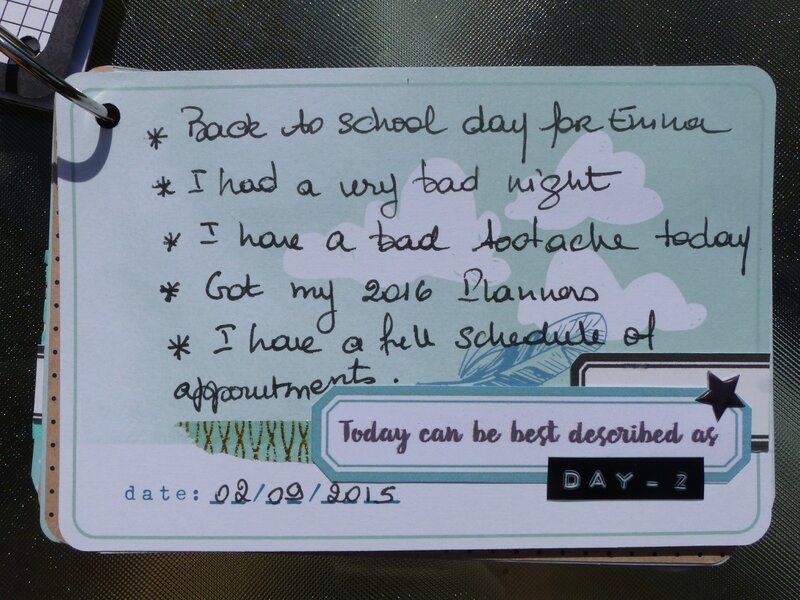 * Back to school day for Emma
* I had a very bad night
* I have a bad tootache today
* Got my 2016 Planners
* I have a full schedule of
appointments.
Today can be best described as
DAY-2
date: 02/09/2015